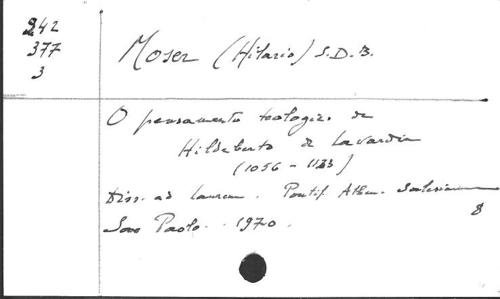 242
377
3
Moser (Hilario) S.D.B.
O pensamento teologico de
Hildeberto de Lavardin
(1056 - 1133)
Diss. ad Lauream. Pontif. Athen. Salesianum
8
Sao Paolo. 1970.